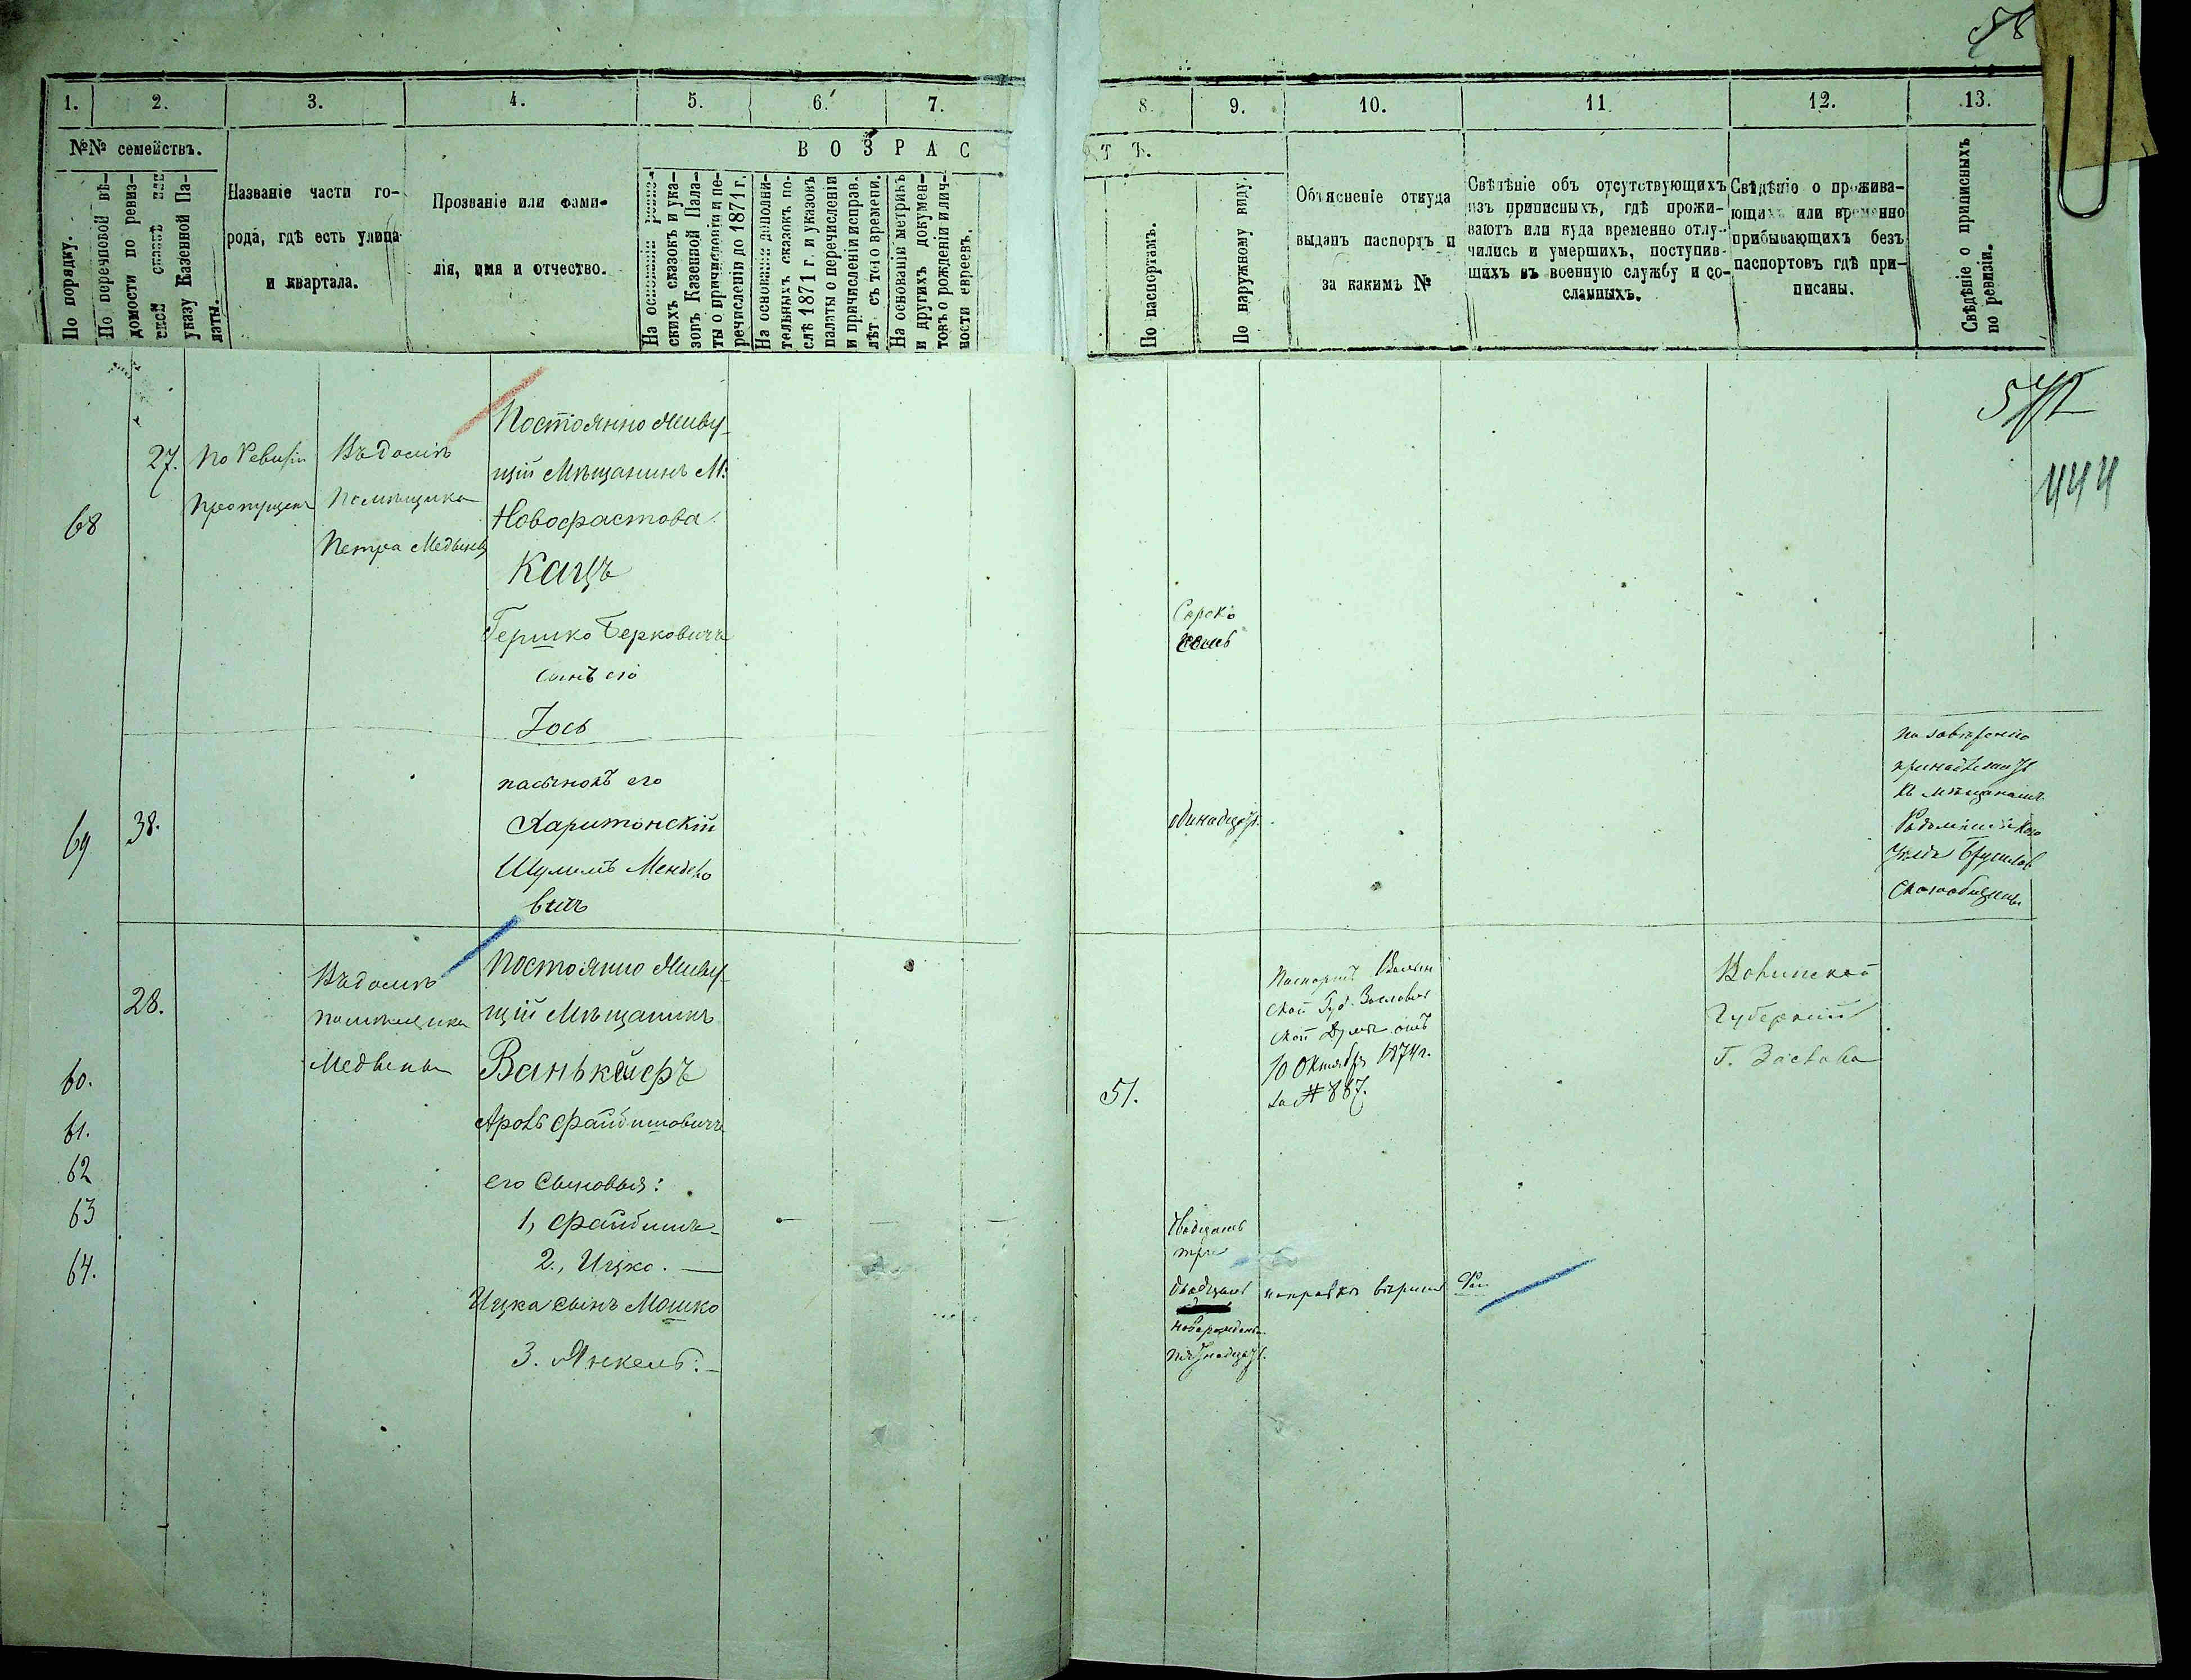 58
1. 2. 3. 4. 5. 6. 7. 8. 9. 10. 11 12. 13.
№№ семействъ.
По порядку.
По перечновой вѣ-
домости по ревиз-
ской сказкѣ или
указу Казенной Па-
латы.
Названіе части го-
рода, гдѣ есть улица
и квартала.
Прозваніе или фами-
лія, имя и отчество.
В О З Р А С
Т Ъ.
На основаніи ревиз-
скихъ сказокъ и ука-
зовъ Казенной Пала-
ты о причисленіи и пе-
речисленіи до 1871 г.
На основаніи дополни-
тельныхъ сказокъ по-
слѣ 1871 г. и указовъ
палаты о перечисленіи
и причисленіи исправ.
лѣт съ того времени.
На основаніи метрикъ
и другихъ докумен-
товъ о рожденіи и лич-
ности евреевъ.
По паспортамъ.
По наружному виду.
Объясненіе откуда
выданъ паспортъ и
за какимъ №
Свѣдѣніе объ отсутствующихъ
изъ приписныхъ, гдѣ прожи-
ваютъ или куда временно отлу-
чились и умершихъ, поступив-
шихъ въ военную службу и со-
сланныхъ.
Свѣдѣніе о прожива-
ющихъ или временно
прибывающихъ безъ
паспортовъ гдѣ при-
писаны.
Свѣдѣніе о приписныхъ
по ревизіи.
444
68
27.
По Ревизіи
пропущенъ
Въ домѣ
Помѣщика
Петра
Постоянно живу-
щій Мѣщанинъ М.
Новофастова
Кацъ
Гершко Берковичъ
сынъ его
Іось
Сорокъ
семь
69
38.
пасынокъ его
Харитонскій
Шулимъ Менделе
вичъ
одинадцать
принадлежитъ
къ мѣщанамъ
28.
Въ домѣ
помѣщика
Постоянно живу-
щій Мѣщанинъ
Ванькейфъ
60.
Аронъ Файбишовичъ
51.
Паспортъ Волын
ской Губ. Заславль
ской Думы отъ
10 Октября 1874 г.
за № 887.
Волынской
Губерніи
Г. Заслава
61.
62
63
64.
его сыновья:
1, Файбишъ
2., Ицко.
Ицка сынъ Мошко
3. Янкель.
Двадцать
три
двадцать
новорожден.
пятнадцать.